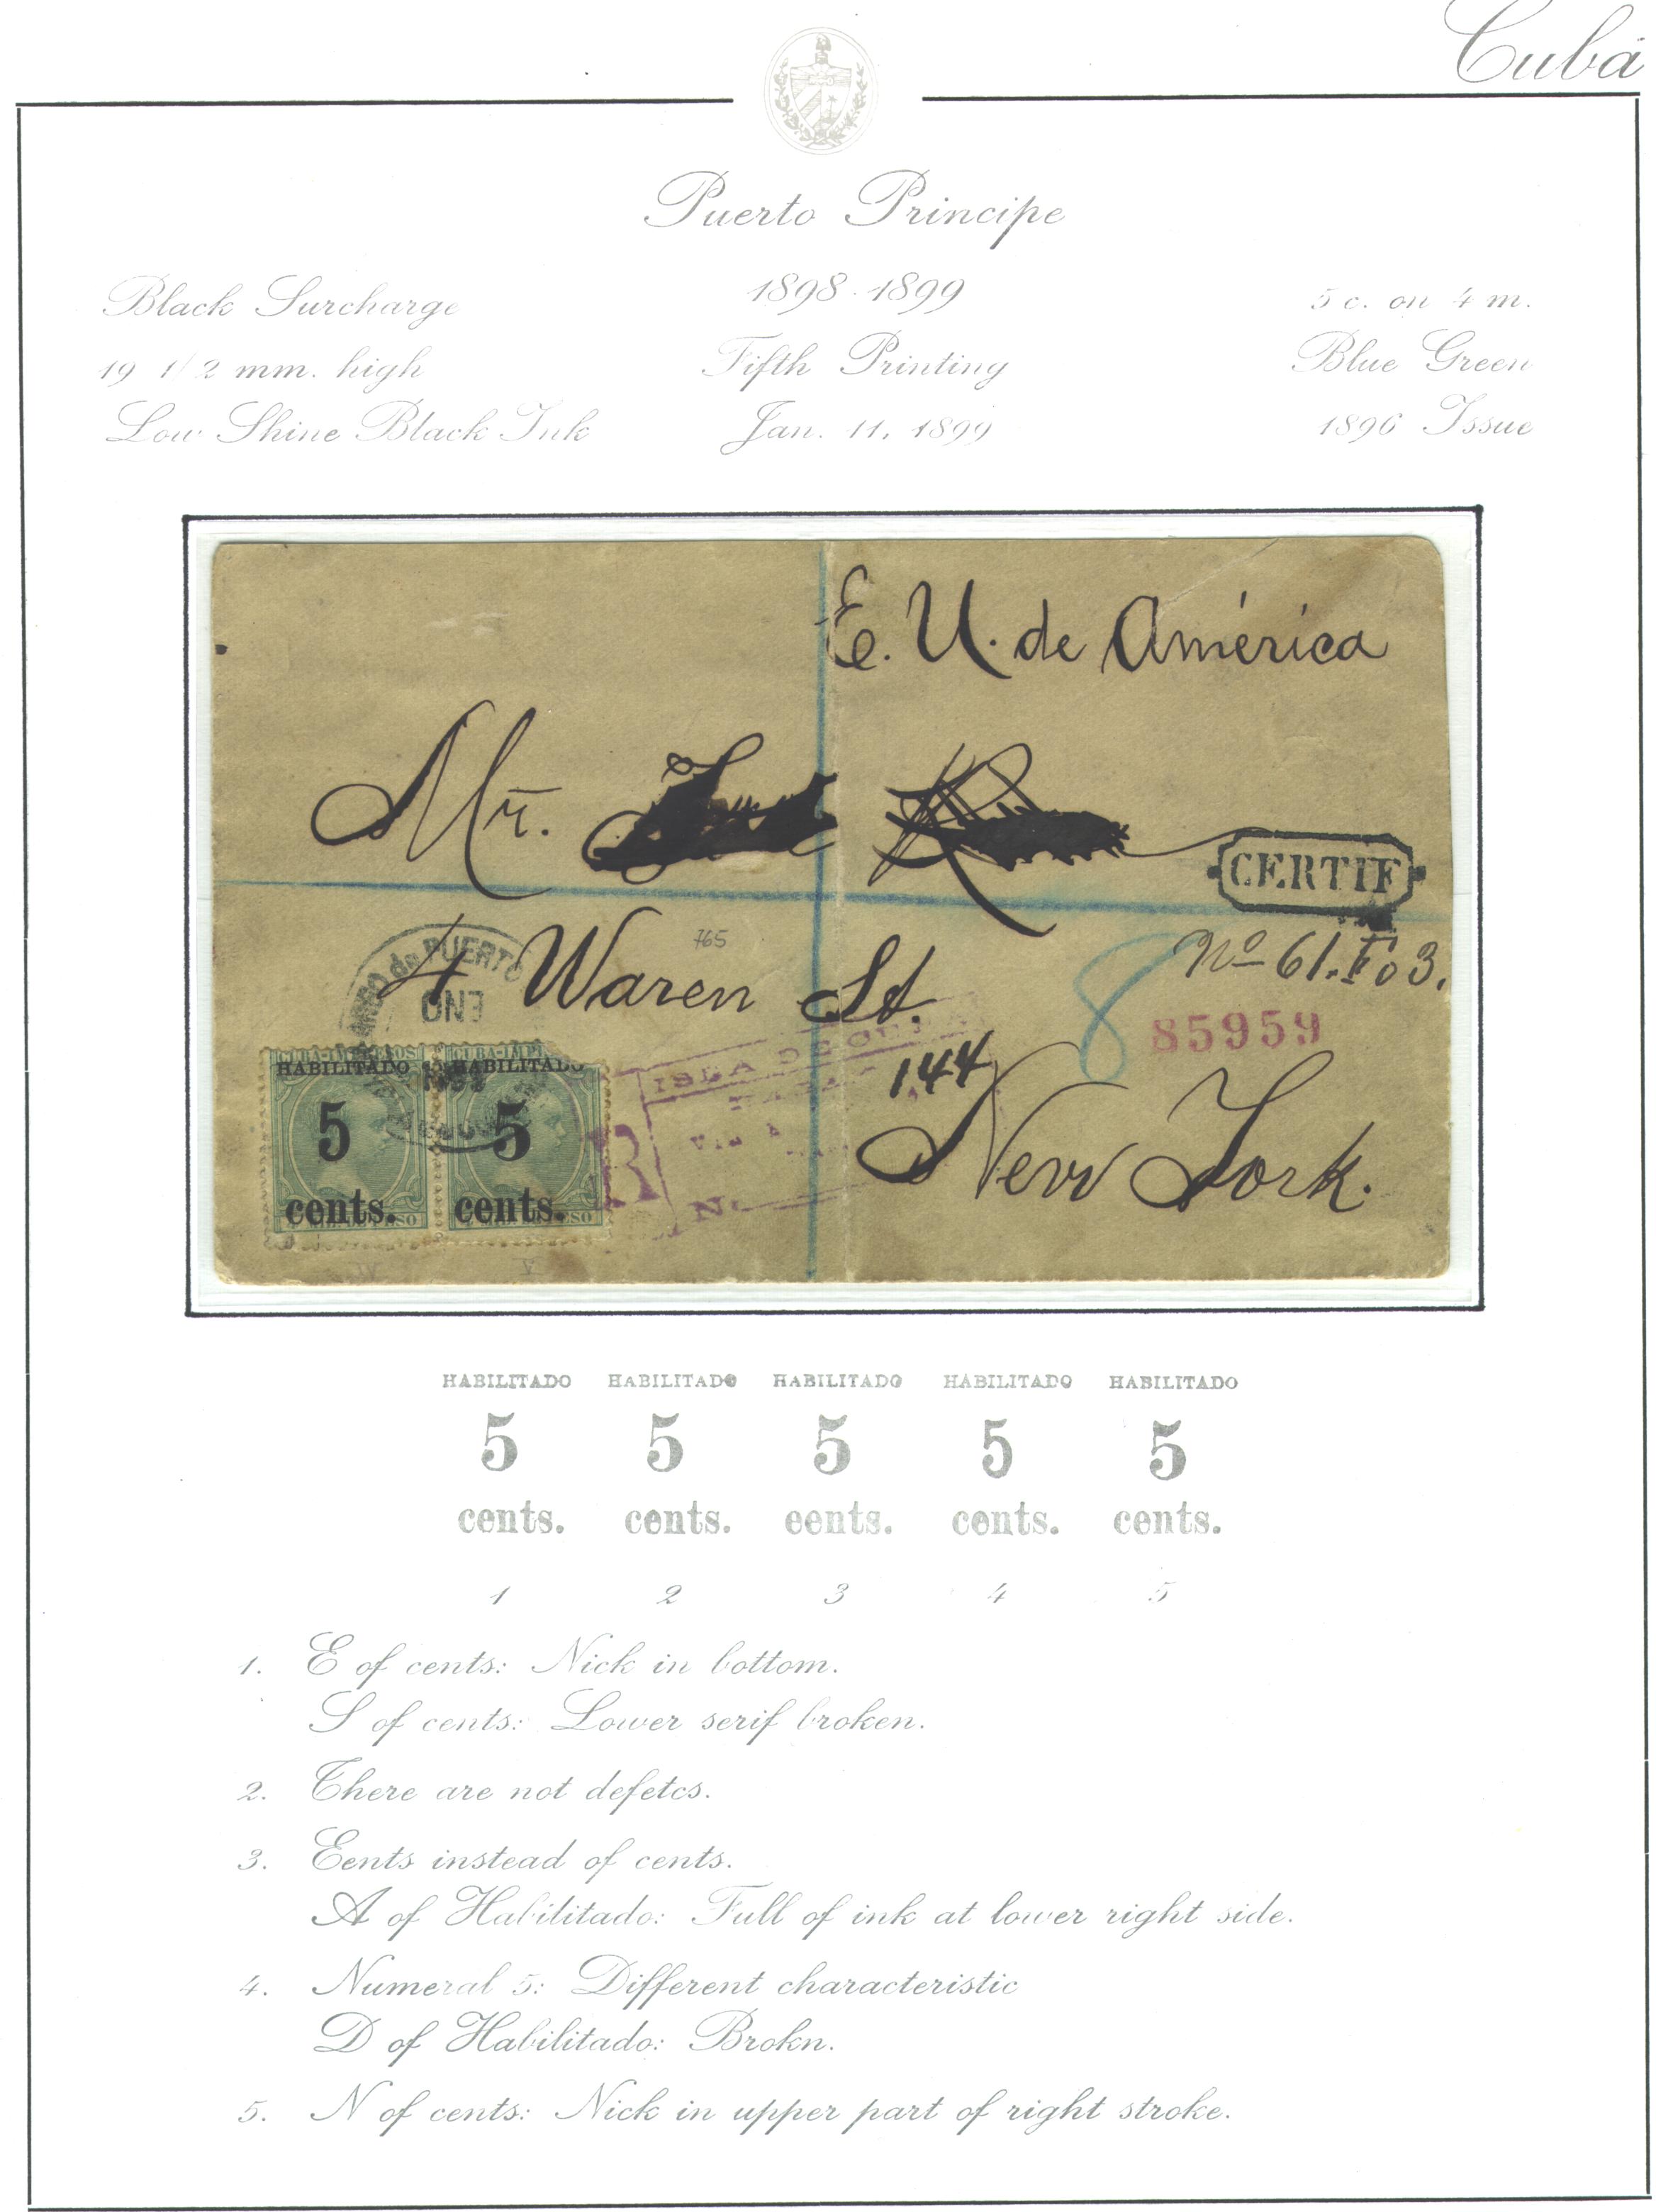 Cubá
Puerto Principe
Black Surcharge
1898-1899
5 c. on 4 m.
19 1/2 mm. high
Fifth Printing
Blue Green
Low Shine Black Ink
Jan. 11, 1899
1896 Issue
E. U. de América
Mr.
CERTIF
765
No 61. Fo 3.
4 Waren St.
de PUERTO
ENO
8
85959
ISLA DE CUBA
144
New York.
CUBA-IMPRESOS CUBA-IMPRE
HABILITADO HABILITADO
5 5
cents. cents.
R
No
HABILITADO HABILITADO HABILITADO HABILITADO HABILITADO
5 5 5 5 5
cents. cents. eents. cents. cents.
1 2 3 4 5
1. E of cents: Nick in bottom.
S of cents: Lower serif broken.
2. There are not defetcs.
3. Eents instead of cents.
A of Habilitado: Full of ink at lower right side.
4. Numeral 5: Different characteristic
D of Habilitado: Brokn.
5. N of cents: Nick in upper part of right stroke.